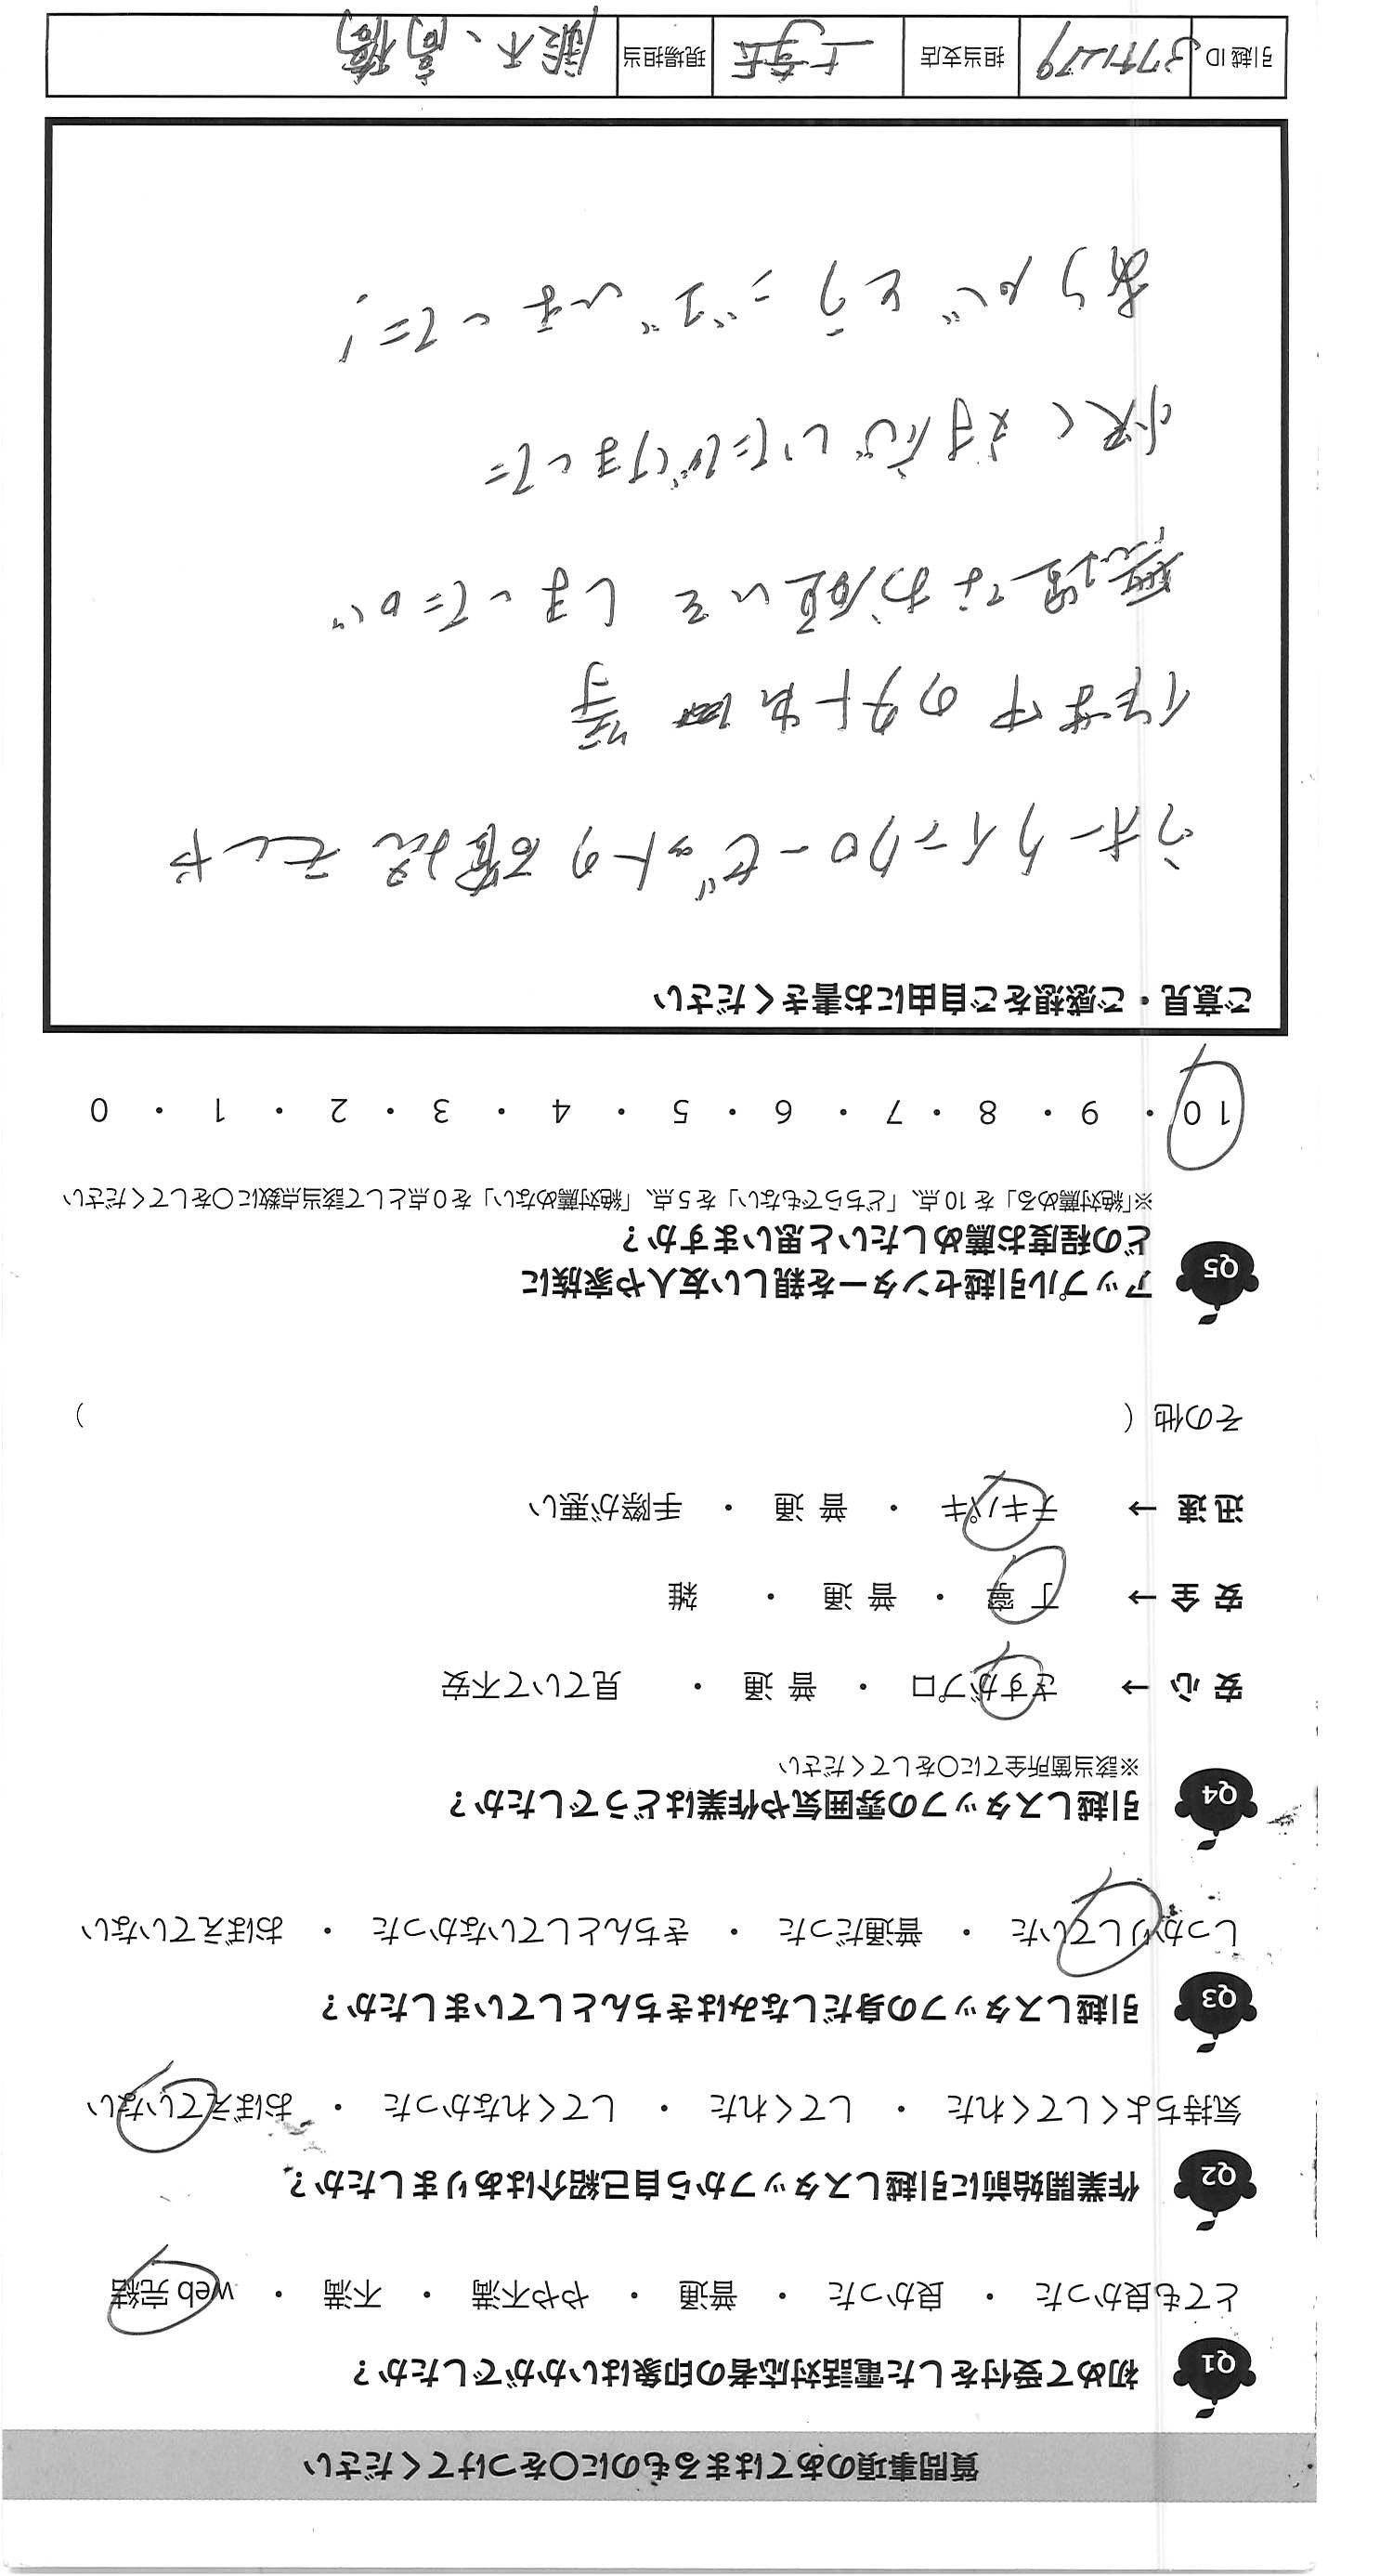 質問事項のあてはまるものに〇をつけてください
Q1 初めて受付をした電話対応者の印象はいかがでしたか？
とても良かった ・ 良かった ・ 普通 ・ やや不満 ・ 不満 ・ web 完結
Q2 作業開始前に引越しスタッフから自己紹介はありましたか？
気持ちよくしてくれた ・ してくれた ・ してくれなかった ・ おぼえていない
Q3 引越しスタッフの身だしなみはきちんとしていましたか？
しっかりしていた ・ 普通だった ・ きちんとしていなかった ・ おぼえていない
Q4 引越しスタッフの雰囲気や作業はどうでしたか？
※該当箇所全てに〇をしてください
安心 → さすがプロ ・ 普通 ・ 見ていて不安
安全 → 丁寧 ・ 普通 ・ 雑
迅速 → テキパキ ・ 普通 ・ 手際が悪い
その他（ ）
Q5 アップル引越センターを親しい友人や家族に
どの程度お薦めしたいと思いますか？
※「絶対薦める」を 10 点、「どちらでもない」を 5 点、「絶対薦めない」を 0 点として該当点数に〇をしてください
10 ・ 9 ・ 8 ・ 7 ・ 6 ・ 5 ・ 4 ・ 3 ・ 2 ・ 1 ・ 0
ご意見・ご感想をご自由にお書きください
ウォークインクローゼットの
作業中の外出 等
無理なお願いをしましたが
快く対応いただけました
ありがとうございました！
引越 ID 担当支店 現場担当 高橋